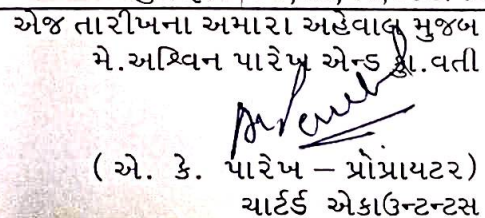 એજ તારીખના અમારા અહેવાલ મુજબ
મે.અશ્વિન પારેખ એન્ડ કા.વતી
(એ. કે. પારેખ – પ્રોપ્રાયટર)
ચાર્ટર્ડ એકાઉન્ટન્ટસ